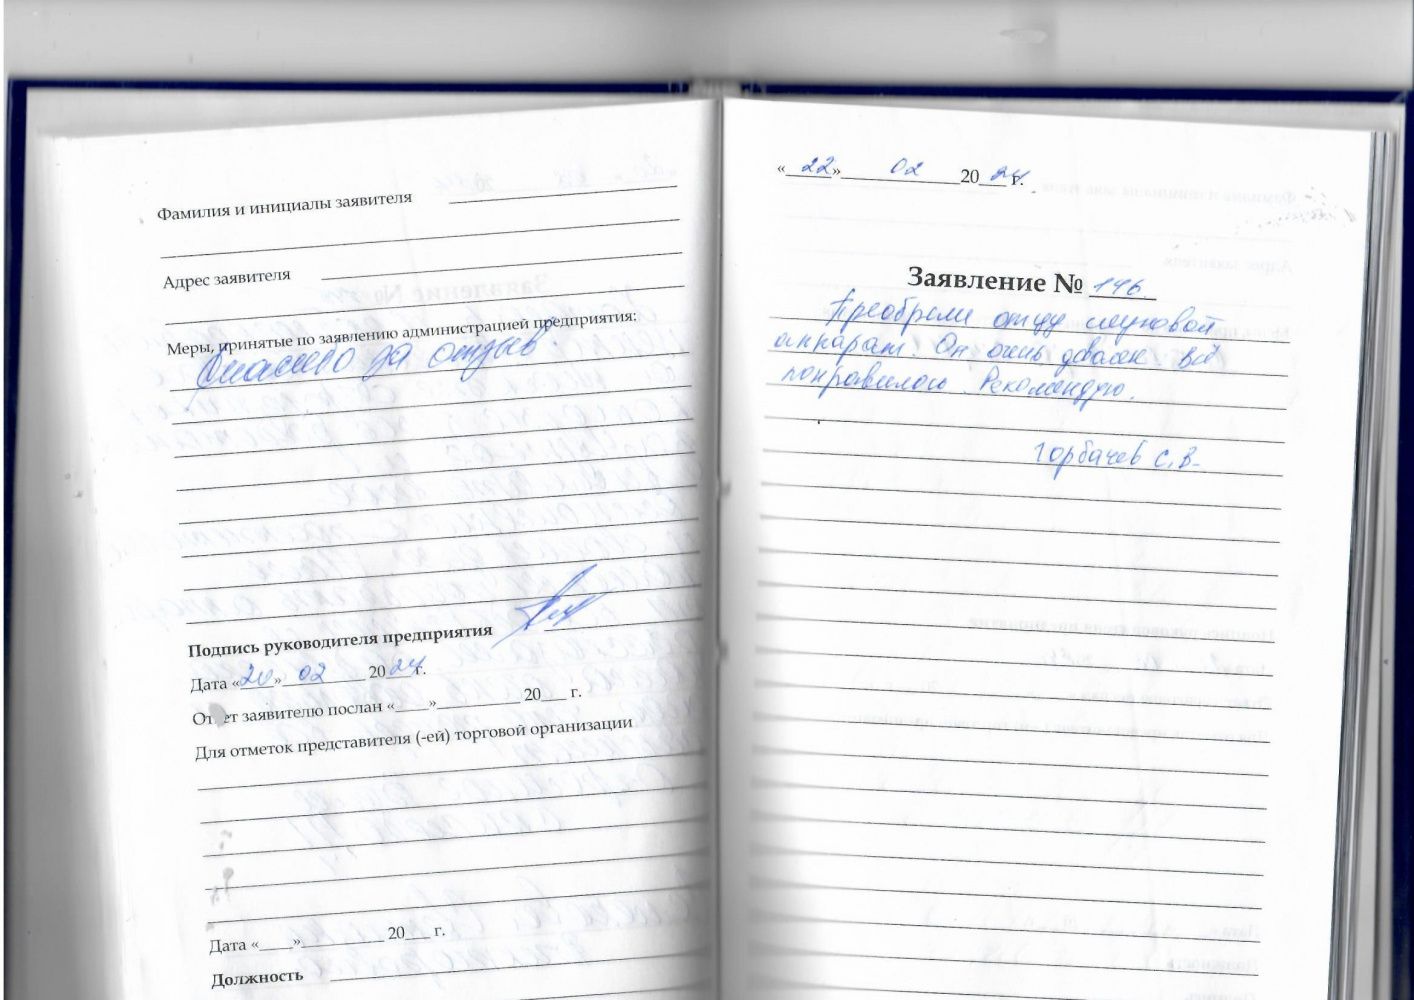 Фамилия и инициалы заявителя
Адрес заявителя
Меры, принятые по заявлению администрацией предприятия:
Спасибо за отзыв.
Подпись руководителя предприятия
Дата «20» 02 2024 г.
Ответ заявителю послан «____»__________ 20___ г.
Для отметок представителя (-ей) торговой организации
Дата «____»__________ 20___ г.
Должность
«22» 02 2024 г.
Заявление № 146.
Преобрели отцу слуховой
аппарат. Он очень доволен. Всё
понравилось. Рекомендую.
Горбачев С.В.